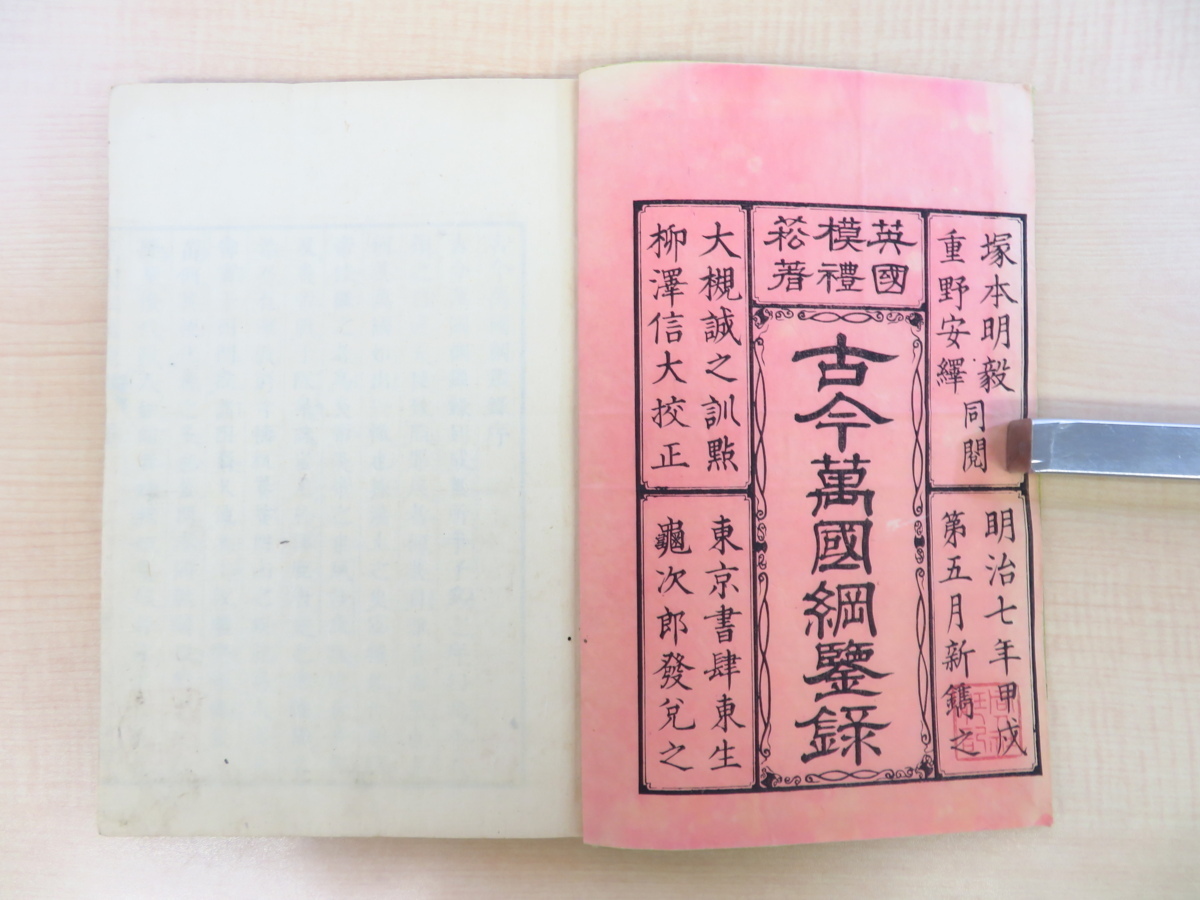 塚本明毅
重野安繹
同閲
明治七年甲戌
第五月新鐫之
英國
模禮
菘著
古今萬國綱鑒録
大槻誠之訓點
柳澤信大挍正
東京書肆東生
龜次郎發兌之